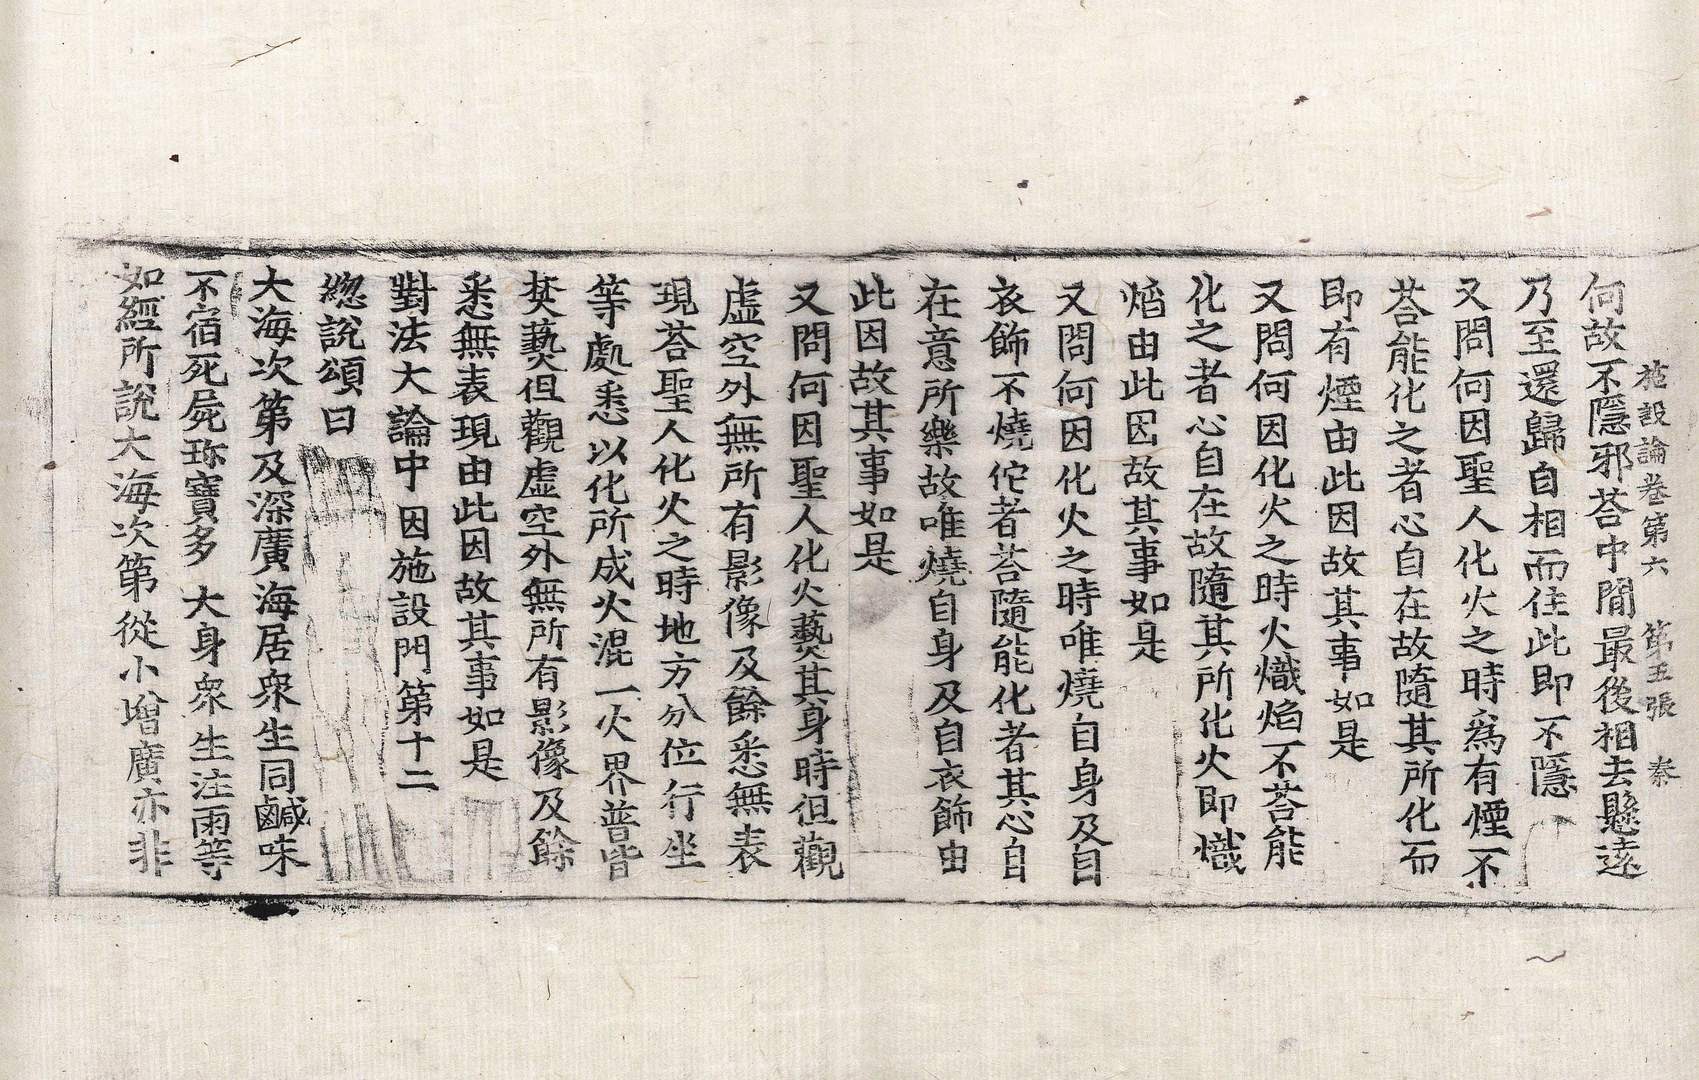 施設論卷第六　第五張　秦
何故不隱邪荅中閒最後相去懸遠
乃至還歸自相而住此即不隱
又問何因聖人化火之時爲有煙不
荅能化之者心自在故隨其所化而
即有煙由此因故其事如是
又問何因化火之時火熾焰不荅能
化之者心自在故隨其所化火即熾
焰由此因故其事如是
又問何因化火之時唯燒自身及自
衣飾不燒佗者荅隨能化者其心自
在意所樂故唯燒自身及自衣飾由
此因故其事如是
又問何因聖人化火爇其身時但觀
虛空外無所有影像及餘悉無表
現荅聖人化火之時地方分位行坐
等處悉以化所成火混一火界普皆
焚爇但觀虛空外無所有影像及餘
悉無表現由此因故其事如是
對法大論中因施設門第十二
緫說頌曰
大海次第及深廣海居衆生同鹹味
不宿死屍珎寶多　大身衆生注雨等
如經所說大海次第從小增廣亦非